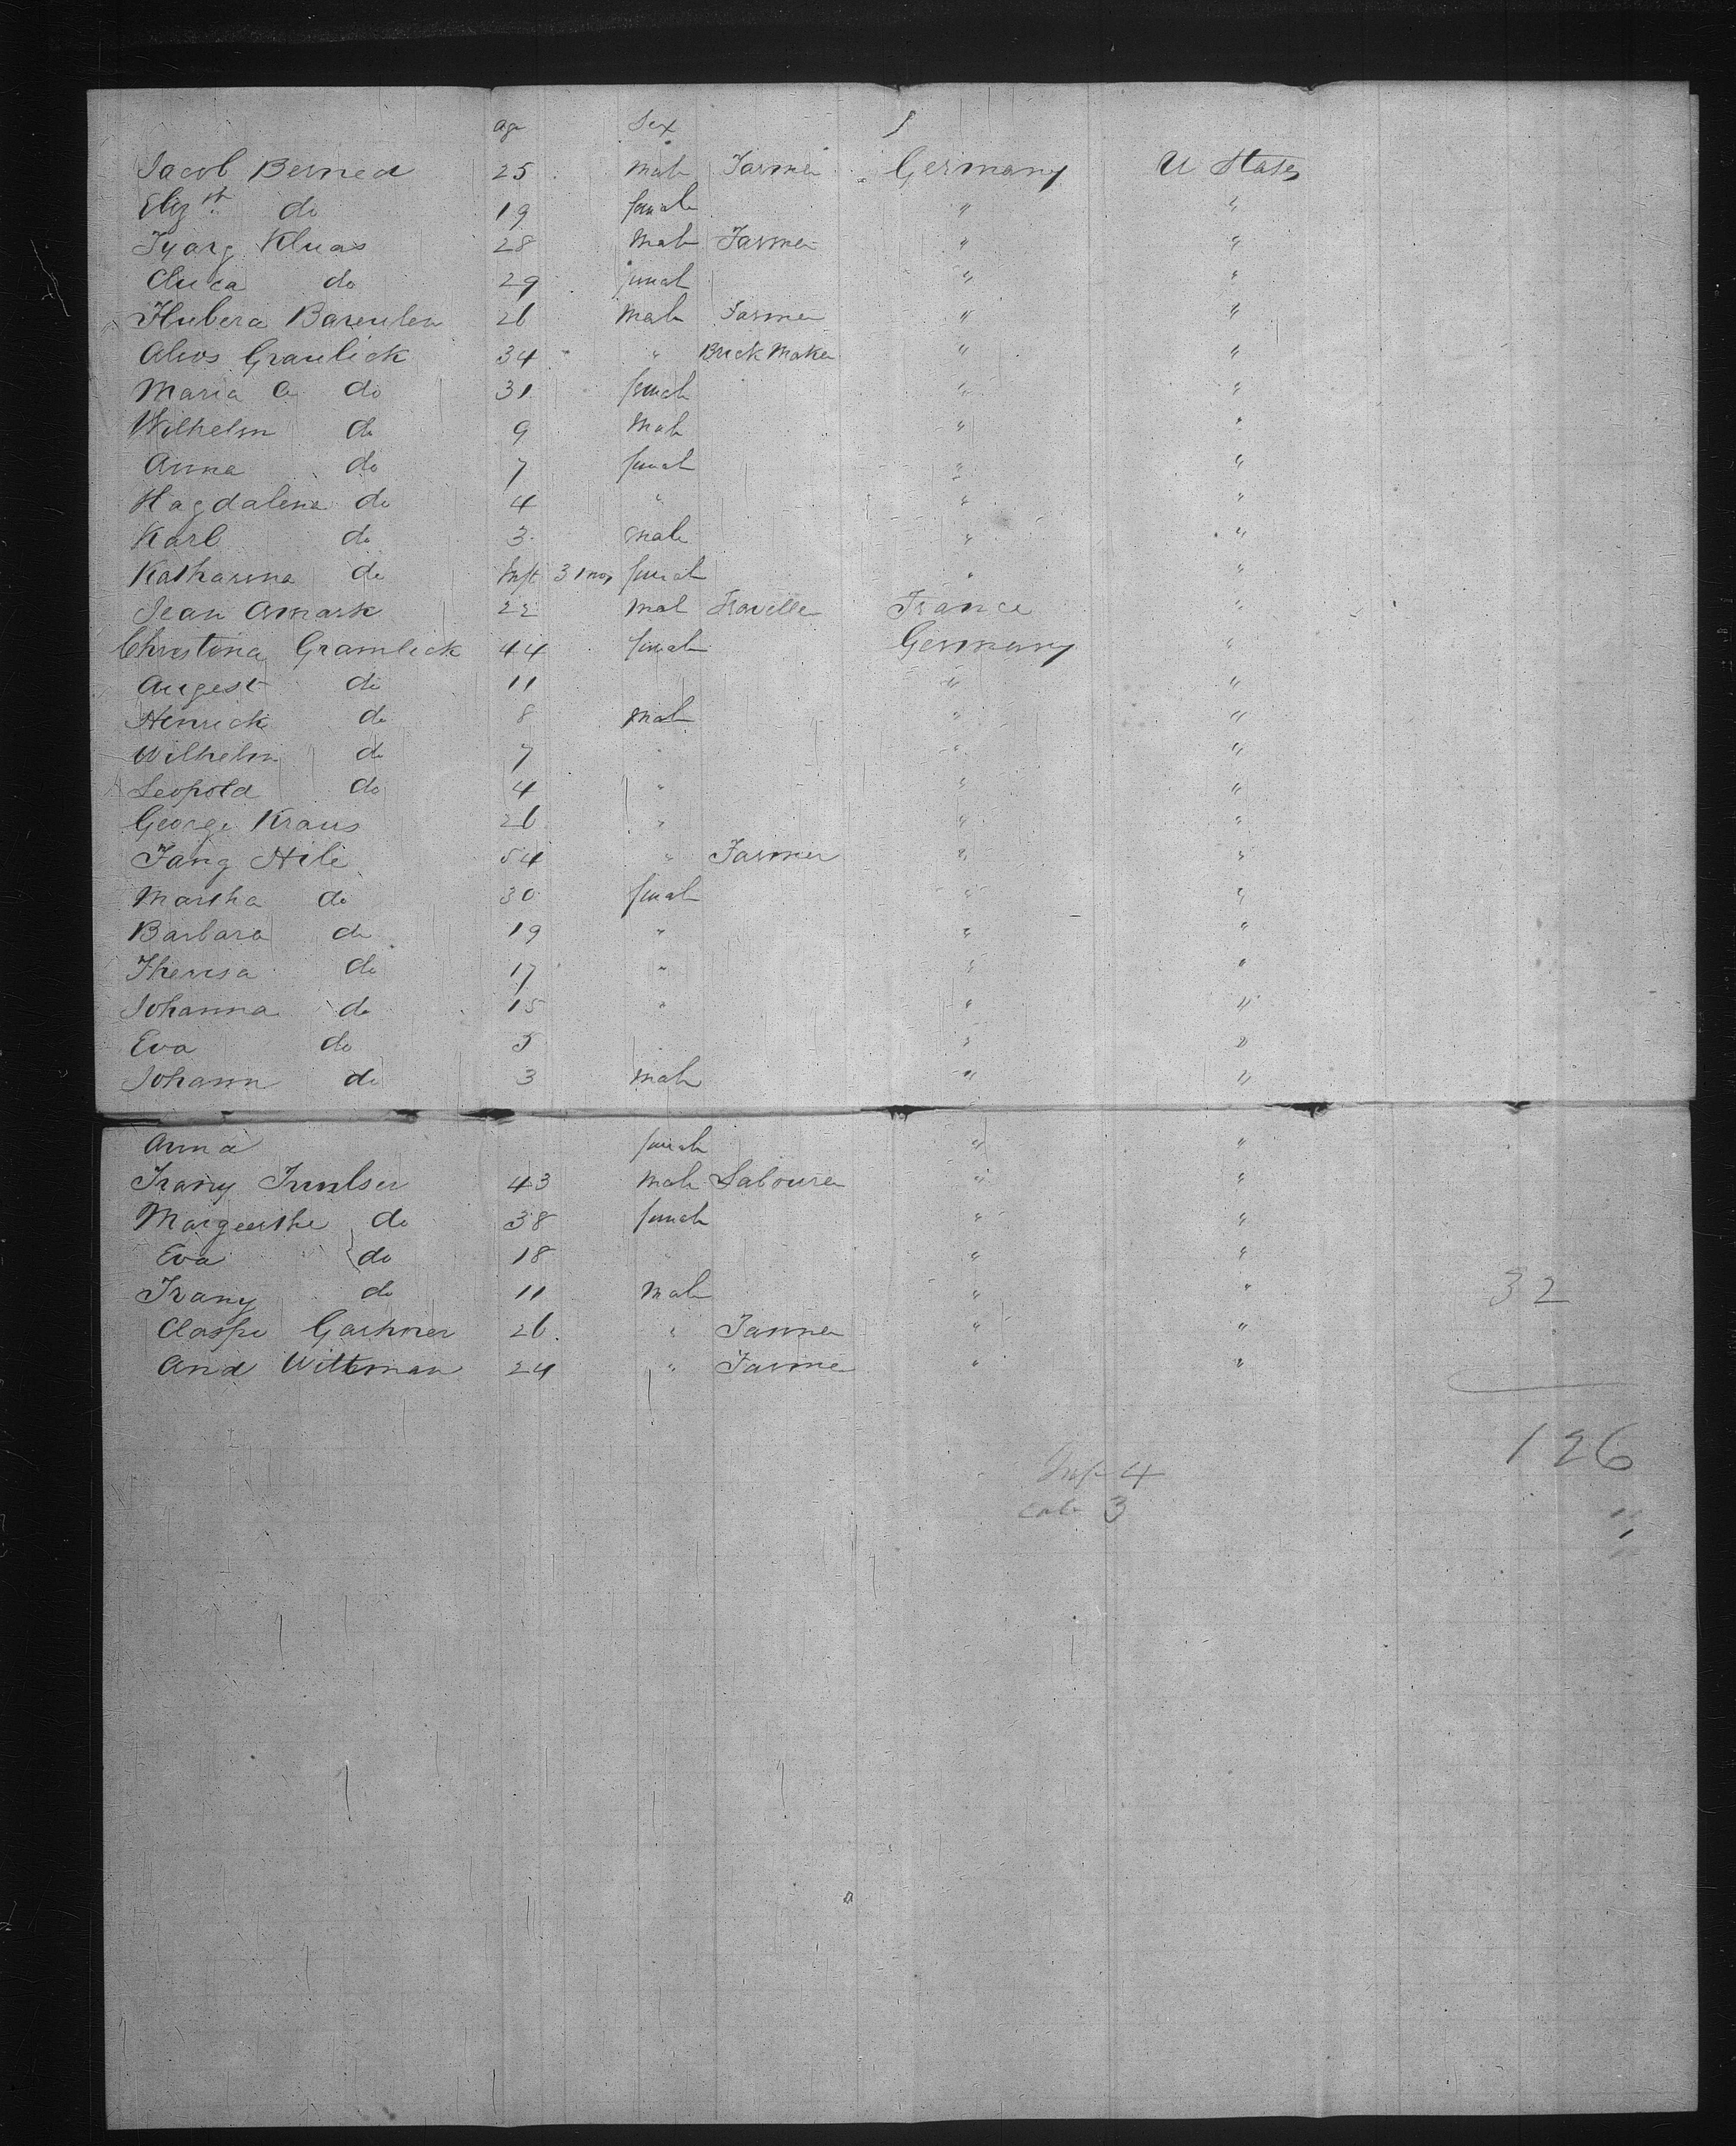 Age Sex
Jacob Berned 25 Male Farmer Germany U States
Eliz th do 19 female " "
Gyorg Kluas 28 Male Farmer " "
do 29 female " "
Hubera 26 Male Farmer " "
Alvos Graulick 34 " Brick Maker " "
Maria C do 31 female " "
Wilhelm do 9 Male " "
Anna do 7 female " "
Magdalena do 4 " " "
Karl do 3 male " "
Katharina do Inft 3 mos female " "
Jean Amark 22 Male Traveller France "
Christina Gramlick 44 female Germany "
Augest do 11 " "
Henrick do 8 Male " "
Wilhelm do 7 " " "
Leopold do 4 " " "
George Kraus 26 " " "
Fang Hile 54 " Farmer " "
Martha do 30 female " "
Barbara do 19 " " "
Theresa do 17 " " "
Johanna do 15 " " "
Eva do 5 " "
Johann do 3 male " "
Anna female " "
Franz 43 Male Labourer " "
Margeerthe do 38 female " "
Eva do 18 " "
Franz do 11 Male " " 32
Caspe Gartner 26 " Farmer " "
And Wittman 24 " Farmer " "
126
Inf 4
Cab 3 "